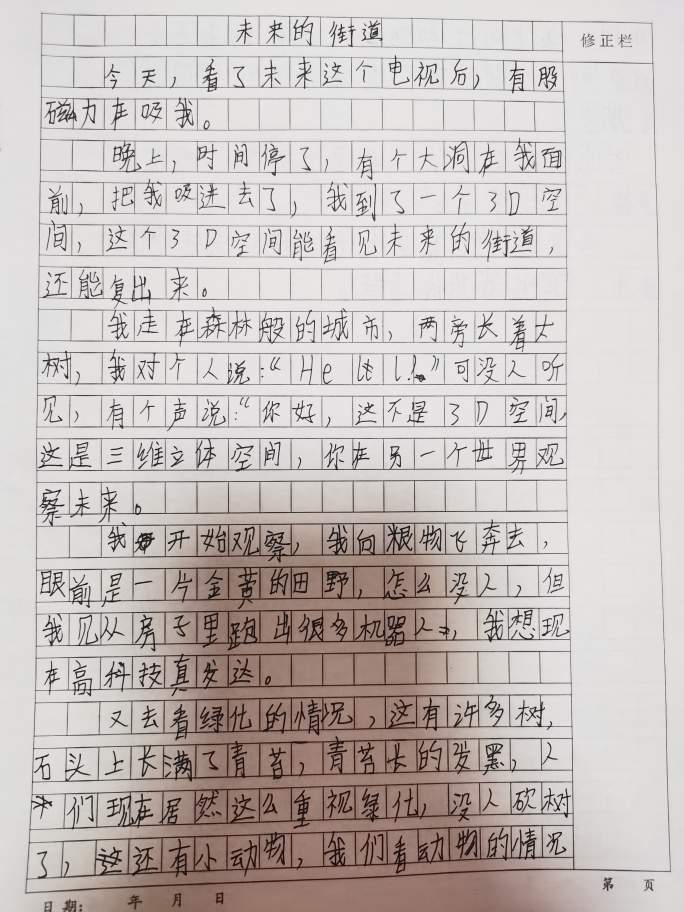 未来的街道
修正栏
今天，看了未来这个电视后，有股
磁力在吸我。
晚上，时间停了，有个大洞在我面
前，把我吸进去了，我到了一个3D空
间，这个3D空间能看见未来的街道，
还能复出来。
我走在森林般的城市，两旁长着大
树，我对个人说：“Hello!”可没人听
见，有个声说：“你好，这不是3D空间，
这是三维立体空间，你在另一个世界观
察未来。
我开始观察，我向粮物飞奔去，
眼前是一片金黄的田野，怎么没人，但
我见从房子里跑出很多机器人，我想现
在高科技真发达。
又去看绿化的情况，这有许多树，
石头上长满了青苔，青苔长的发黑，人
们现在居然这么重视绿化，没人砍树
了，这还有小动物，我们看动物的情况
日期： 年 月 日
第 页